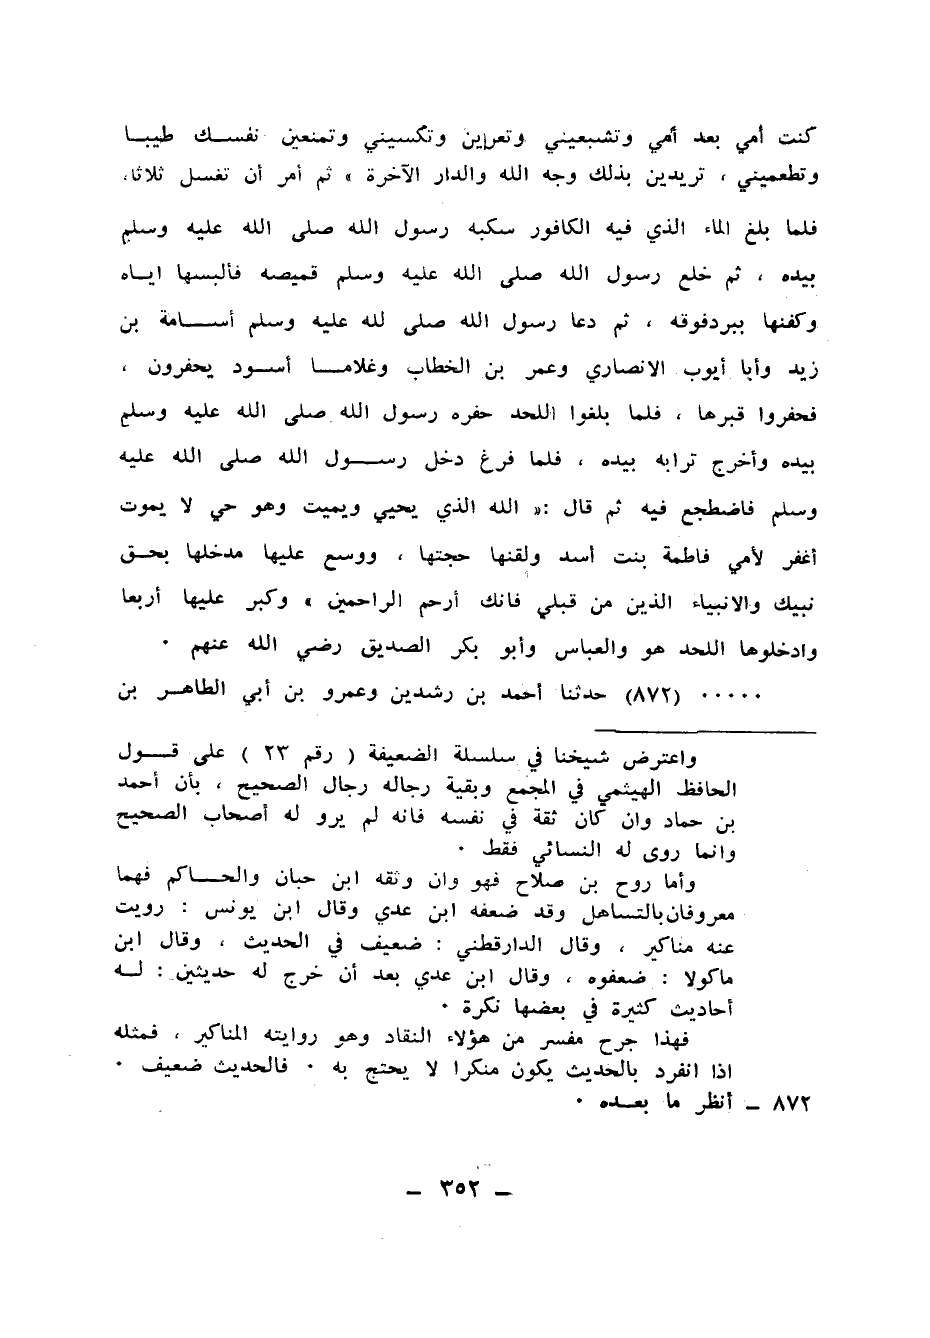 كنت أمي بعد أمي وتشبعيني وتعراين وتكسيني وتمنعين نفسك طيبا
وتطعميني ، تريدين بذلك وجه الله والدار الآخرة » ثم أمر أن تغسل ثلاثا،
فلما بلغ الماء الذي فيه الكافور سكبه رسول الله صلى الله عليه وسلم
بيده ، ثم خلع رسول الله صلى الله عليه وسلم قميصه فألبسها اياه
وكفنها ببردفوقه ، ثم دعا رسول الله صلى لله عليه وسلم أسامة بن
زيد وأبا أيوب الانصاري وعمر بن الخطاب وغلاما أسود يحفرون ،
فحفروا قبرها ، فلما بلغوا اللحد حفره رسول الله صلى الله عليه وسلم
بيده وأخرج ترابه بيده ، فلما فرغ دخل رسول الله صلى الله عليه
وسلم فاضطجع فيه ثم قال :« الله الذي يحيي ويميت وهو حي لا يموت
أغفر لأمي فاطمة بنت أسد ولقنها حجتها ، ووسع عليها مدخلها بحق
نبيك والانبياء الذين من قبلي فانك أرحم الراحمين » وكبر عليها أربعا
وادخلوها اللحد هو والعباس وأبو بكر الصديق رضي الله عنهم ٠
٠٠٠٠٠ (٨٧٢) حدثنا أحمد بن رشدين وعمرو بن أبي الطاهر بن
واعترض شيخنا في سلسلة الضعيفة ( رقم ٢٣ ) على قول
الحافظ الهيثمي في المجمع وبقية رجاله رجال الصحيح ، بأن أحمد
بن حماد وان كان ثقة في نفسه فانه لم يرو له أصحاب الصحيح
وانما روى له النسائي فقط ٠
وأما روح بن صلاح فهو وان وثقه ابن حبان والحاكم فهما
معروفان بالتساهل وقد ضعفه ابن عدي وقال ابن يونس : رويت
عنه مناكير ، وقال الدارقطني : ضعيف في الحديث ، وقال ابن
ماكولا : ضعفوه ، وقال ابن عدي بعد أن خرج له حديثين : له
أحاديث كثيرة في بعضها نكرة ٠
فهذا جرح مفسر من هؤلاء النقاد وهو روايته المناكير ، فمثله
اذا انفرد بالحديث يكون منكرا لا يحتج به ٠ فالحديث ضعيف ٠
٨٧٢ ــ أنظر ما بعده ٠
ــ ٣٥٢ ــ